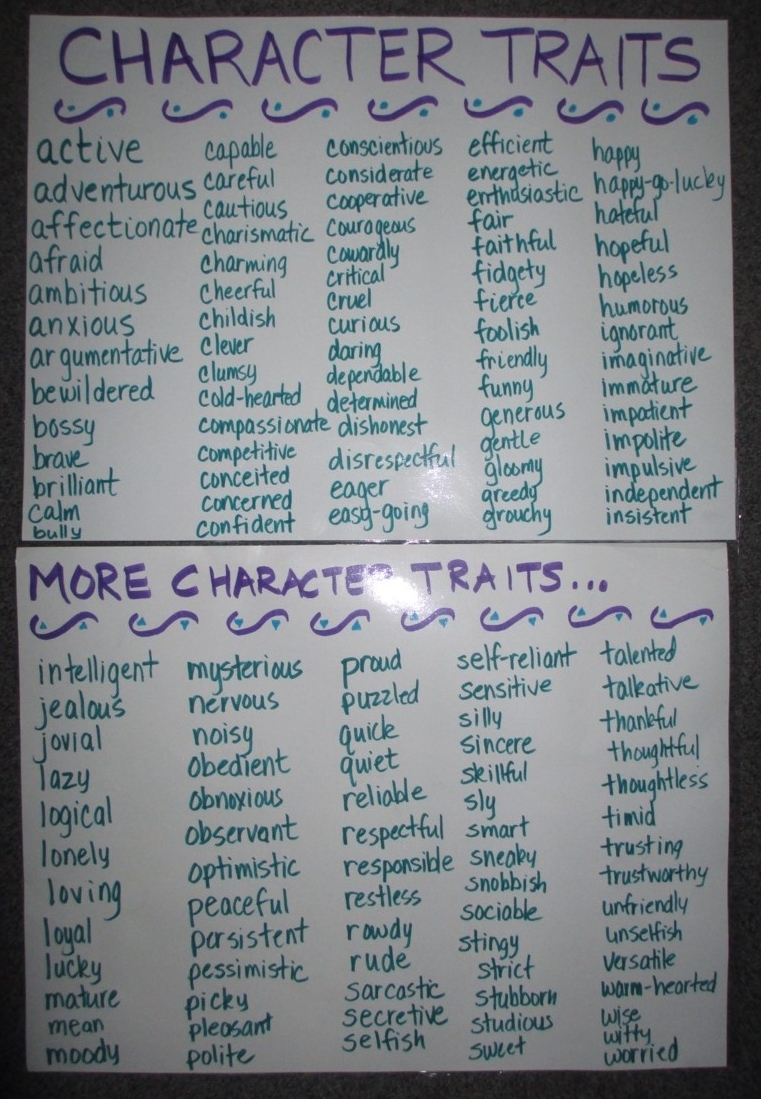 CHARACTER TRAITS
active
adventurous
affectionate
afraid
ambitious
anxious
argumentative
bewildered
bossy
brave
brilliant
calm
bully
capable
careful
cautious
charismatic
charming
cheerful
childish
clever
clumsy
cold-hearted
compassionate
competitive
conceited
concerned
confident
conscientious
considerate
cooperative
courageous
cowardly
critical
cruel
curious
daring
dependable
determined
dishonest
disrespectful
eager
easy-going
efficient
energetic
enthusiastic
fair
faithful
fidgety
fierce
foolish
friendly
funny
generous
gentle
gloomy
greedy
grouchy
happy
happy-go-lucky
hateful
hopeful
hopeless
humorous
ignorant
imaginative
immature
impatient
impolite
impulsive
independent
insistent
MORE CHARACTER TRAITS...
intelligent
jealous
jovial
lazy
logical
lonely
loving
loyal
lucky
mature
mean
moody
mysterious
nervous
noisy
obedient
obnoxious
observant
optimistic
peaceful
persistent
pessimistic
picky
pleasant
polite
proud
puzzled
quick
quiet
reliable
respectful
responsible
restless
rowdy
rude
sarcastic
secretive
selfish
self-reliant
sensitive
silly
sincere
skillful
sly
smart
sneaky
snobbish
sociable
stingy
strict
stubborn
studious
sweet
talented
talkative
thankful
thoughtful
thoughtless
timid
trusting
trustworthy
unfriendly
unselfish
versatile
warm-hearted
wise
witty
worried